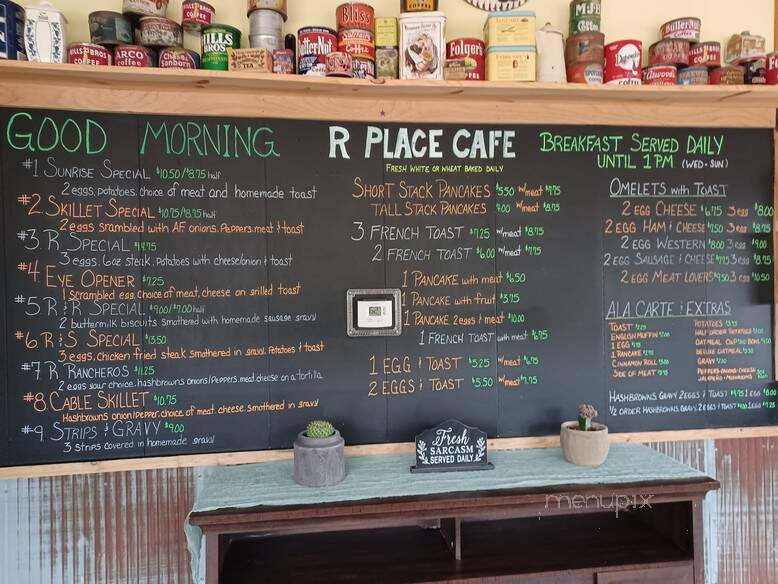 HILLS BROS
COFFEE
ARCO
COFFEE
Chase &
Sanborn
HILLS
BROS
ButterNut
COFFEE
BLISS
COFFEE
Folgers
COFFEE
M·J·B
COFFEE
COFFEE
ButterNut
COFFEE
GOOD MORNING
#1 SUNRISE SPECIAL $10.50/$8.75 half
2 eggs, potatoes, choice of meat and homemade toast
#2. SKILLET SPECIAL $10.75/$8.75 half
2 eggs srambled with AF onions, Peppers, meat & toast
#3. R SPECIAL $14.75
3 eggs, 6oz steak, Potatoes with cheese/onion & toast
#4. EYE OPENER $7.25
1 scrambled egg, choice of meat, cheese on grilled toast
#5. R & R SPECIAL $9.00/$7.00 half
2 buttermilk biscuits smothered with homemade sausage gravy
#6. R & S SPECIAL $13.50
3 eggs, chicken fried steak smothered in gravy, Potatoes & toast
#7. R RANCHEROS $11.25
2 eggs your choice, hashbrowns onions/Peppers, meat, cheese on a tortilla
#8. CABLE SKILLET $10.75
Hashbrowns onion/Pepper, choice of meat, cheese, smothered in gravy
#9. STRIPS & GRAVY $9.00
3 strips covered in homemade gravy
R PLACE CAFE
FRESH WHITE OR WHEAT BAKED DAILY
SHORT STACK PANCAKES $5.50 w/meat $7.75
TALL STACK PANCAKES 7.00 w/meat $8.75
3 FRENCH TOAST $7.25 w/meat $8.75
2 FRENCH TOAST $6.00 w/meat $7.75
1 PANCAKE with meat $6.50
1 PANCAKE with fruit $5.75
1 PANCAKE, 2 eggs & meat $10.00
1 FRENCH TOAST with meat $6.75
1 EGG & TOAST $5.25 w/meat $6.75
2 EGGS & TOAST $5.50 w/meat $7.75
BREAKFAST SERVED DAILY
UNTIL 1 PM (WED-SUN)
OMELETS with TOAST
2 EGG CHEESE $6.75 3 egg $8.00
2 EGG HAM & CHEESE $7.50 3 egg $8.75
2 EGG WESTERN $8.00 3 egg $9.00
2 EGG SAUSAGE & CHEESE $7.75 3 egg $8.75
2 EGG MEAT LOVERS $9.50 3 egg $10.50
ALA CARTE & EXTRAS
TOAST
ENGLISH MUFFIN
1 EGG
1 PANCAKE
CINNAMON ROLL
SIDE OF MEAT
POTATOES
HALF ORDER POTATOES
OATMEAL CUP BOWL
DELUXE OATMEAL
GRAVY
PEPPERS-ONIONS-CHEESE
JALAPENO-MUSHROOMS
HASHBROWNS GRAVY 2 EGGS & TOAST 1 EGG $8.00
1/2 ORDER HASHBROWNS GRAVY 2 EGGS & TOAST 1 EGG
Fresh
SARCASM
SERVED DAILY
menupix